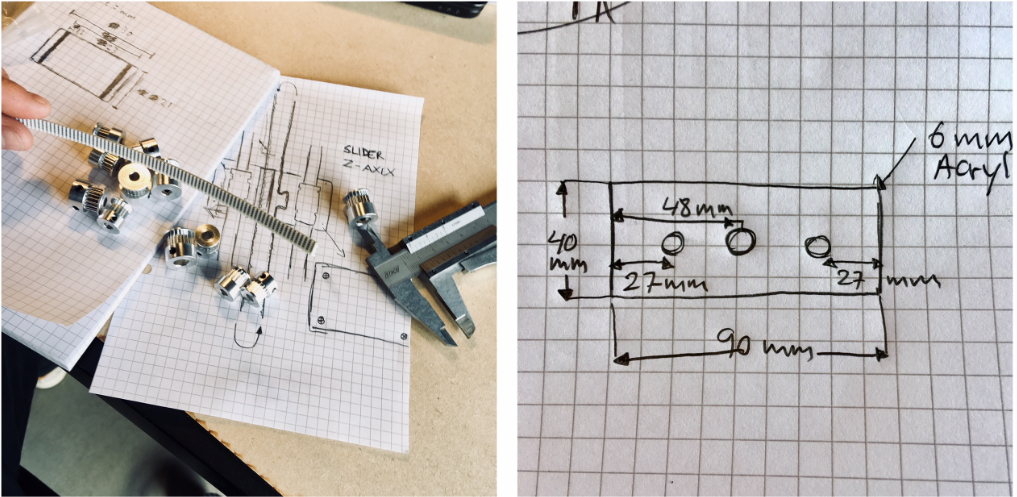 SLIDER
Z-AXIX
6 mm
Acryl
48 mm
40
mm
27 mm
27 mm
90 mm